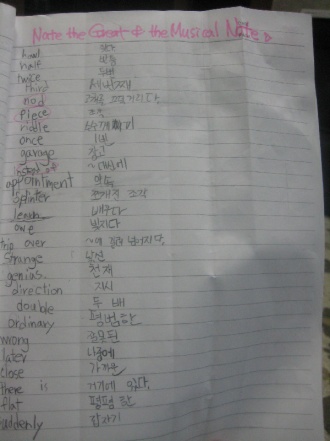 Nate the Great & the Musical Note
howl 짖다
half 반쯤
twice 두번
third 세번째
nod 고개를 끄덕거리다
piece 조각
riddle 수수께끼
once 1번
garage 창고
instead of ~대신에
appointment 약속
splinter 쪼개진 조각
learn 배우다
owe 빚지다
trip over ~에 걸려 넘어지다
strange 낯선
genius 천재
direction 지시
double 두 배
ordinary 평범한
wrong 잘못된
later 나중에
close 가까운
there is 거기에 있다
flat 평평한
suddenly 갑자기